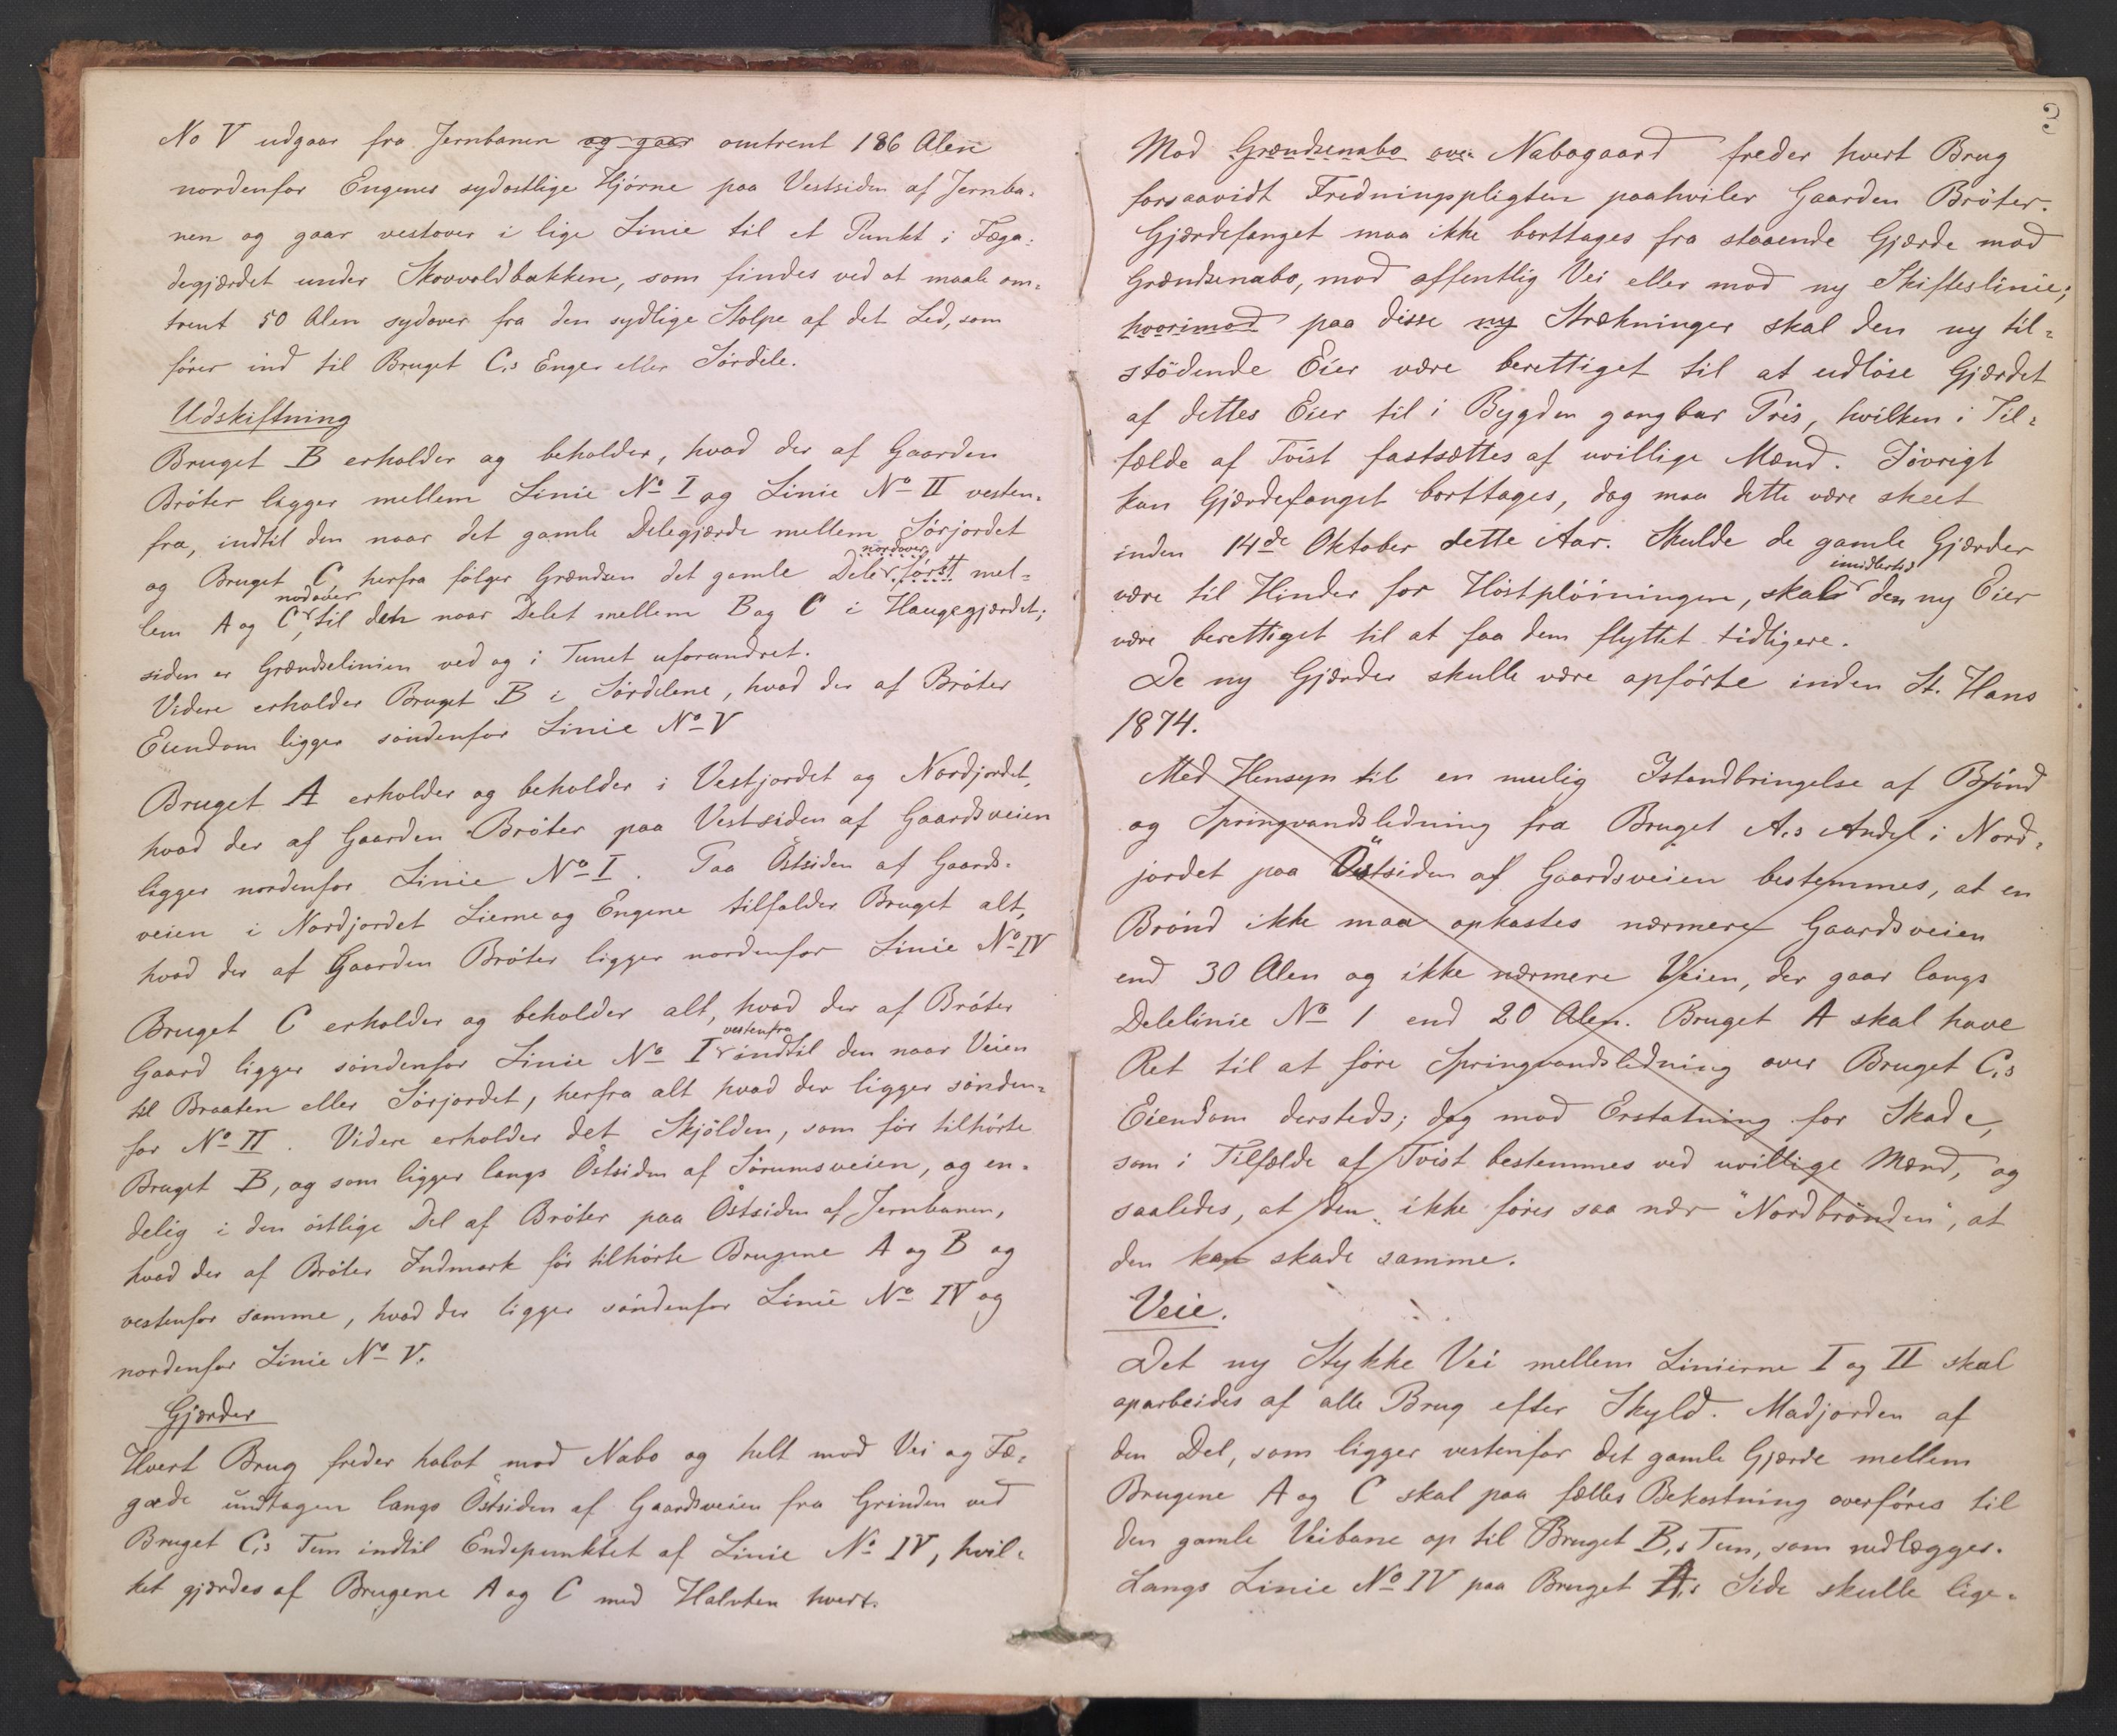 No V udgaar fra Jernbanen og gaar omtrent 186 Alen
nordenfor Engenes sydostlige Hjörne paa Vestsiden af Jernba-
nen og gaar vestover i lige Linie til et Punkt i Fæga-
degjærdet under Skovvoldbakken, som findes ved at maale om-
trent 50 Alen sydover fra den sydlige Stolpe af det Led, som
förer ind til Bruget C,s Enger eller Sördele.
Udskiftning
Bruget B erholder og beholder, hvad der af Gaarden
Bröter ligger mellem Linie No I og Linie No II vesten-
fra, indtil den naar det gamle Delegjærde mellem Sörjordet
nordover
og Bruget C, herfra fölger Grændsen det gamle Dele först mel-
nodover
lem A og C, til den naar Delet mellem B og C i Haugegjærdet;
siden er Grændselinien ved og i Tunet uforandret.
Videre erholder Bruget B i Sördelene, hvad der af Bröter
Eiendom ligger söndenfor Linie No V
Bruget A erholder og beholder i Vestjordet og Nordjordet,
hvad der af Gaarden Bröter paa Vestsiden af Gaardsveien
ligger nordenfor Linie No I. Paa Östsiden af Gaards-
veien i Nordjordet Lierne og Engene tilfalder Bruget alt,
hvad der af Gaarden Bröter ligger nordenfor Linie No IV
Bruget C erholder og beholder alt, hvad der af Bröter
vestenfra
Gaard ligger söndenfor Linie No I indtil den naar Veien
til Braaten eller Sörjordet, herfra alt hvad der ligger sönden-
for No II. Videre erholder det Skjölden, som för tilhörte
Bruget B, og som ligger langs Östsiden af Sörumsveien, og en-
delig i den östlige Del af Bröter paa Östsiden af Jernbanen,
hvad der af Bröter Indmark för tilhörte Brugene A og B og
vestenfor samme, hvad der ligger söndenfor Linie No IV og
nordenfor Linie No V.
Gjærder
Hvert Brug freder halvt mod Nabo og helt mod Vei og Fæ-
gade undtagen langs Östsiden af Gaardsveien fra Grinden ved
Bruget C,s Tun indtil Endepunktet af Linie No IV, hvil-
ket gjærdes af Brugene A og C med Halvten hvert.
3
Mod Grændsenabo Nabogaard freder hvert Brug
forsaavidt Fredningspligten paahviler Gaarden Bröter.
Gjærdefanget maa ikke borttages fra staaende Gjærde mod
Grændsenabo, mod offentlig Vei eller mod ny Skifteslinie;
hvorimod paa disse ny Strækninger skal den ny til-
stödende Eier være berettiget til at udlöse Gjærdet
af dettes Eier til i Bygden gangbar Pris, hvilken i Til-
fælde af Tvist fastsættes af uvillige Mænd. Iövrigt
kan Gjærdefanget borttages, dog maa dette være skeet
inden 14de Oktober dette Aar. Skulde de gamle Gjærder
imidlertid
være til Hinder for Höstplöiningen, skal den ny Eier
være berettiget til at faa dem flyttet tidligere.
De ny Gjærder skulle være opförte inden St. Hans
1874.
Med Hensyn til en mulig Istandbringelse af Brönd
og Springvandsledning fra Bruget A,s Andel i Nord-
jordet paa Östsiden af Gaardsveien bestemmes, at en
Brönd ikke maa opkastes nærmere Gaardsveien
end 30 Alen og ikke nærmere Veien, der gaar langs
Delelinie No 1 end 20 Alen. Bruget A skal have
Ret til at före Springvandsledning over Bruget C,s
Eiendom dersteds; dog mod Erstatning for Skade,
som i Tilfælde af Tvist bestemmes ved uvillige Mænd, og
saaledes, at den ikke föres saa nær "Nordbrönden", at
den kan skade samme.
Veie.
Det ny Stykke Vei mellem Linierne I og II skal
oparbeides af alle Brug efter Skyld. Madjorden af
den Del, som ligger vestenfor det gamle Gjærde mellem
Brugene A og C skal paa fælles Bekostning overföres til
den gamle Veibane op til Bruget B,s Tun, som nedlægges.
Langs Linie No IV paa Bruget A,s Side skulle lige-